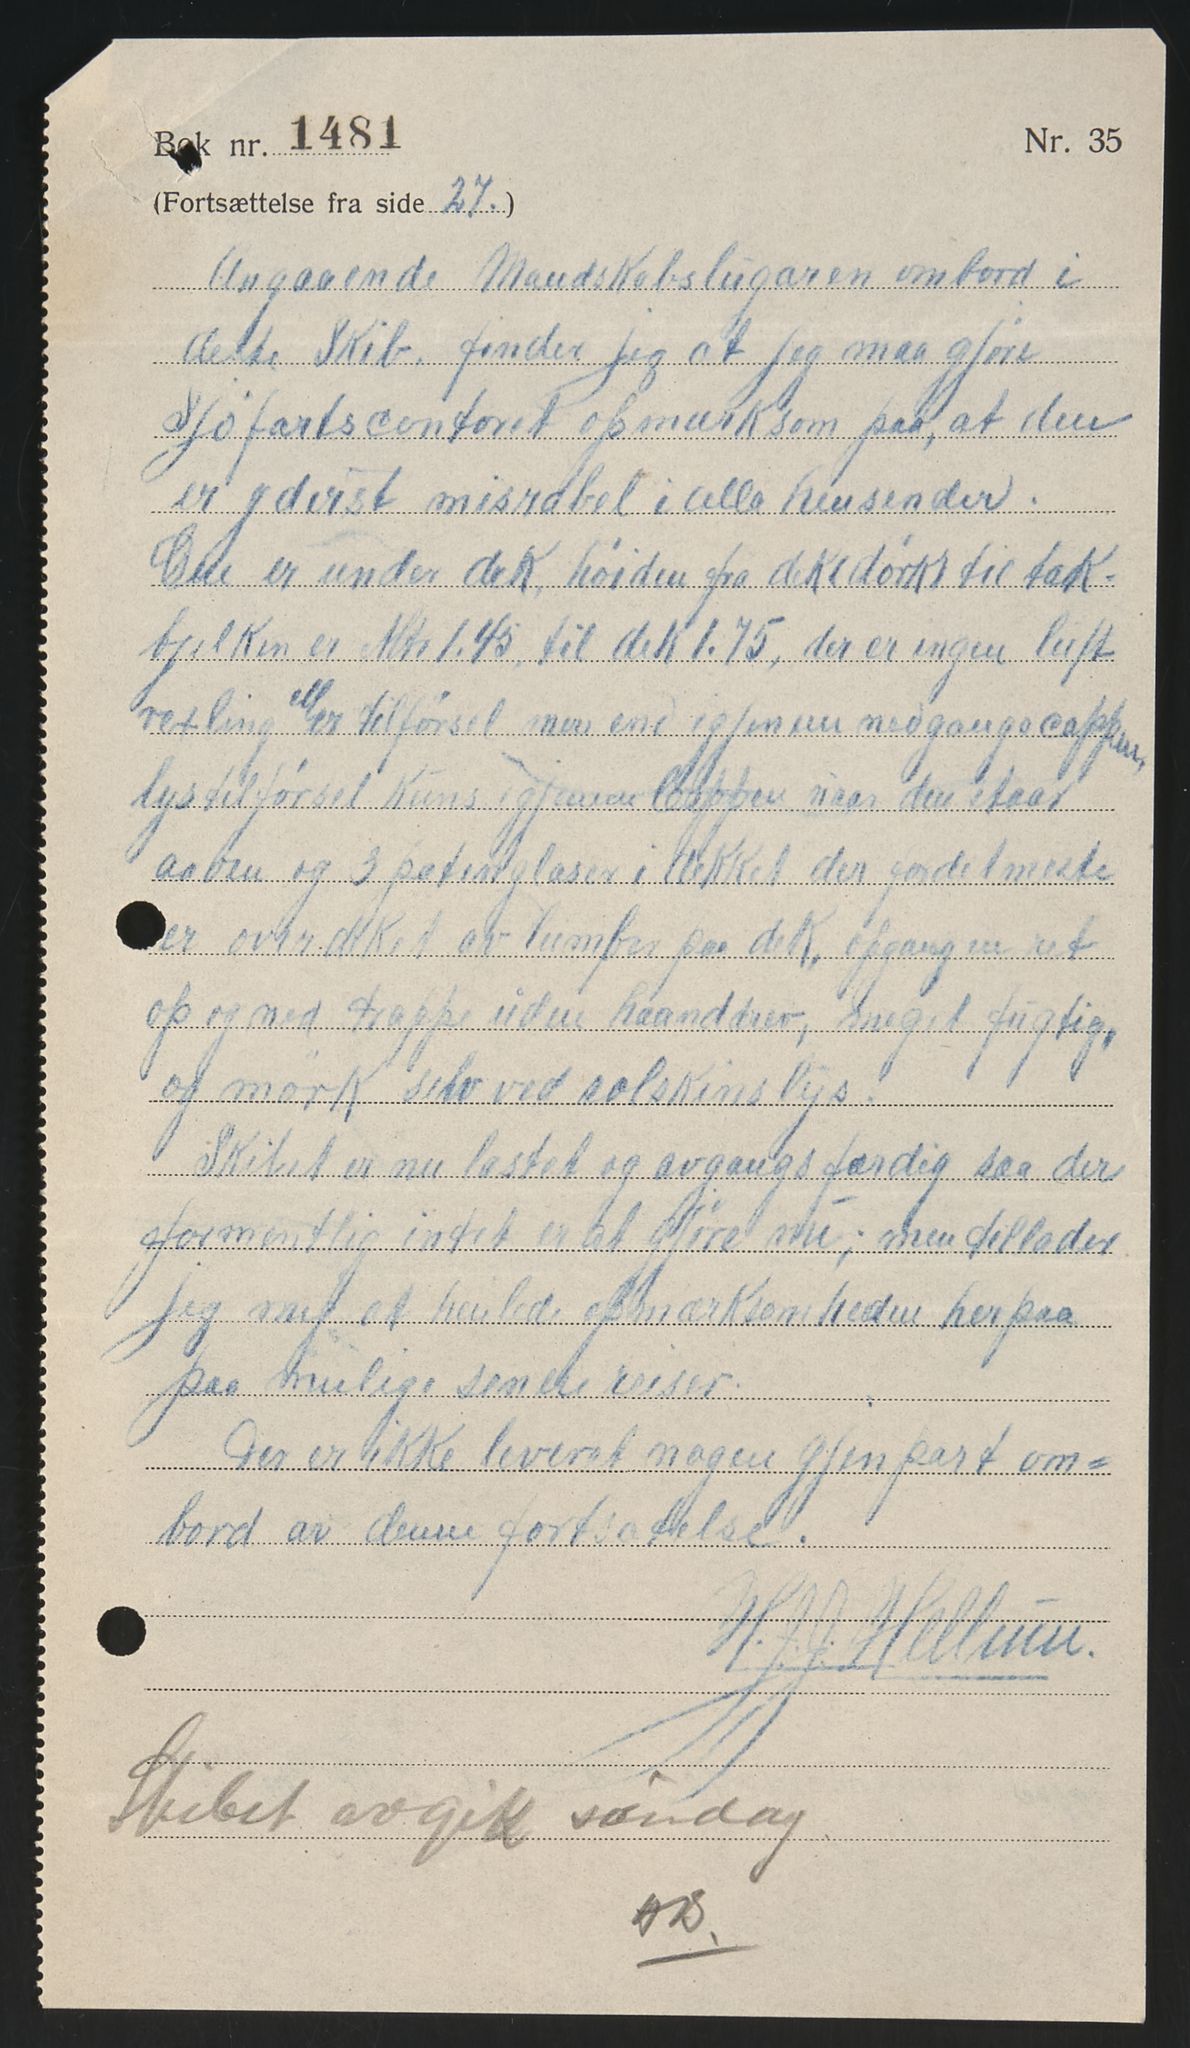 Bok nr. 1481
Nr. 35
(Fortsættelse fra side 27.)
Angaaende Mandskabslugaren ombord i
dette Skib, finder jeg at jeg maa gjøre
Sjöfartscontoret opmerksom paa, at den
er yderst misrabel i alla hensender.
Den er under dek, höiden fra deksdörk til tak-
bjelken er Mtr 1.45, til dek 1.75, der er ingen luft
vexling eller tilførsel men end igjenem nedgangscappen,
lystilførsel kuns igjenem Cappen naar den staar
aaben og 3 patentglaser i dekket der fordetmeste
er overdeket av tumber paa dek, opgangen ret
op og ned trappe uden haanddrev, meget fugtig,
og mörk selv ved solskinslys.
Skibet er nu lastet og avgangsfærdig saa der
formentlig intet er at gjöre nu; men tillader
jeg mig at henlede opmærksomheden herpaa
paa mulige senere reiser.
Der er ikke leveret nogen Gjenpart om=
bord av denne fortsatelse.
H. J. J. Hellum.
Skibet avgik søndag
HB.